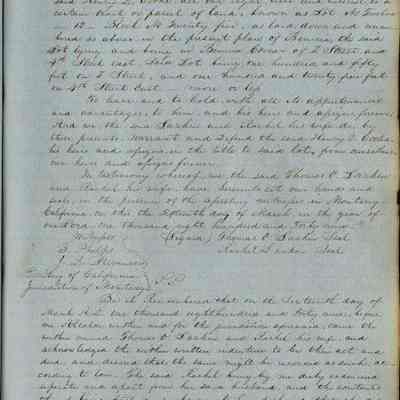 said Henry D. Cooke all our right, title and interest to a
certain lot or parcel of land, known as Lot No Twelve
in Block No Twenty five, as laid down and num-
bered as above in the present plan of Benicia, the said
Lot lying and being in Benicia Corner of I Street and
4th Street east. Said Lot being one hundred and fifty
feet on I Street, and one hundred and twenty five feet
on 4th Street East more or less
To have and to hold with all its appurtenances
and advantages, to him and his heirs and assigns forever.
And we the said Larkin and Rachel his wife do by
these presents Warrant and defend the said Henry D. Cooke
his heirs and assigns in the title to said lot, from ourselves
our heirs and assigns forever.
In testimony whereof we the said Thomas O. Larkin
and Rachel his wife have hereunto set our hands and
seals, in the presence of the
in Monterey
California on this the Sixteenth day of March, in the year of
our Lord one thousand eight hundred and forty nine
Witness (Signed) Thomas O. Larkin Seal
Rachel Larkin Seal
of California
Jurisdiction of Monterey
Be it Remembered that on the Sixteenth day of
March A.D. one thousand eight hundred and forty nine before
me Alcalde within and for the jurisdiction aforesaid, came the
within named Thomas O. Larkin and Rachel his wife, and
acknowledged the within written indenture to be their act and
deed, and desired that the same might be recorded as such ac-
cording to law. The said Rachel being by me duly examined
separate and apart from her said husband, and the contents